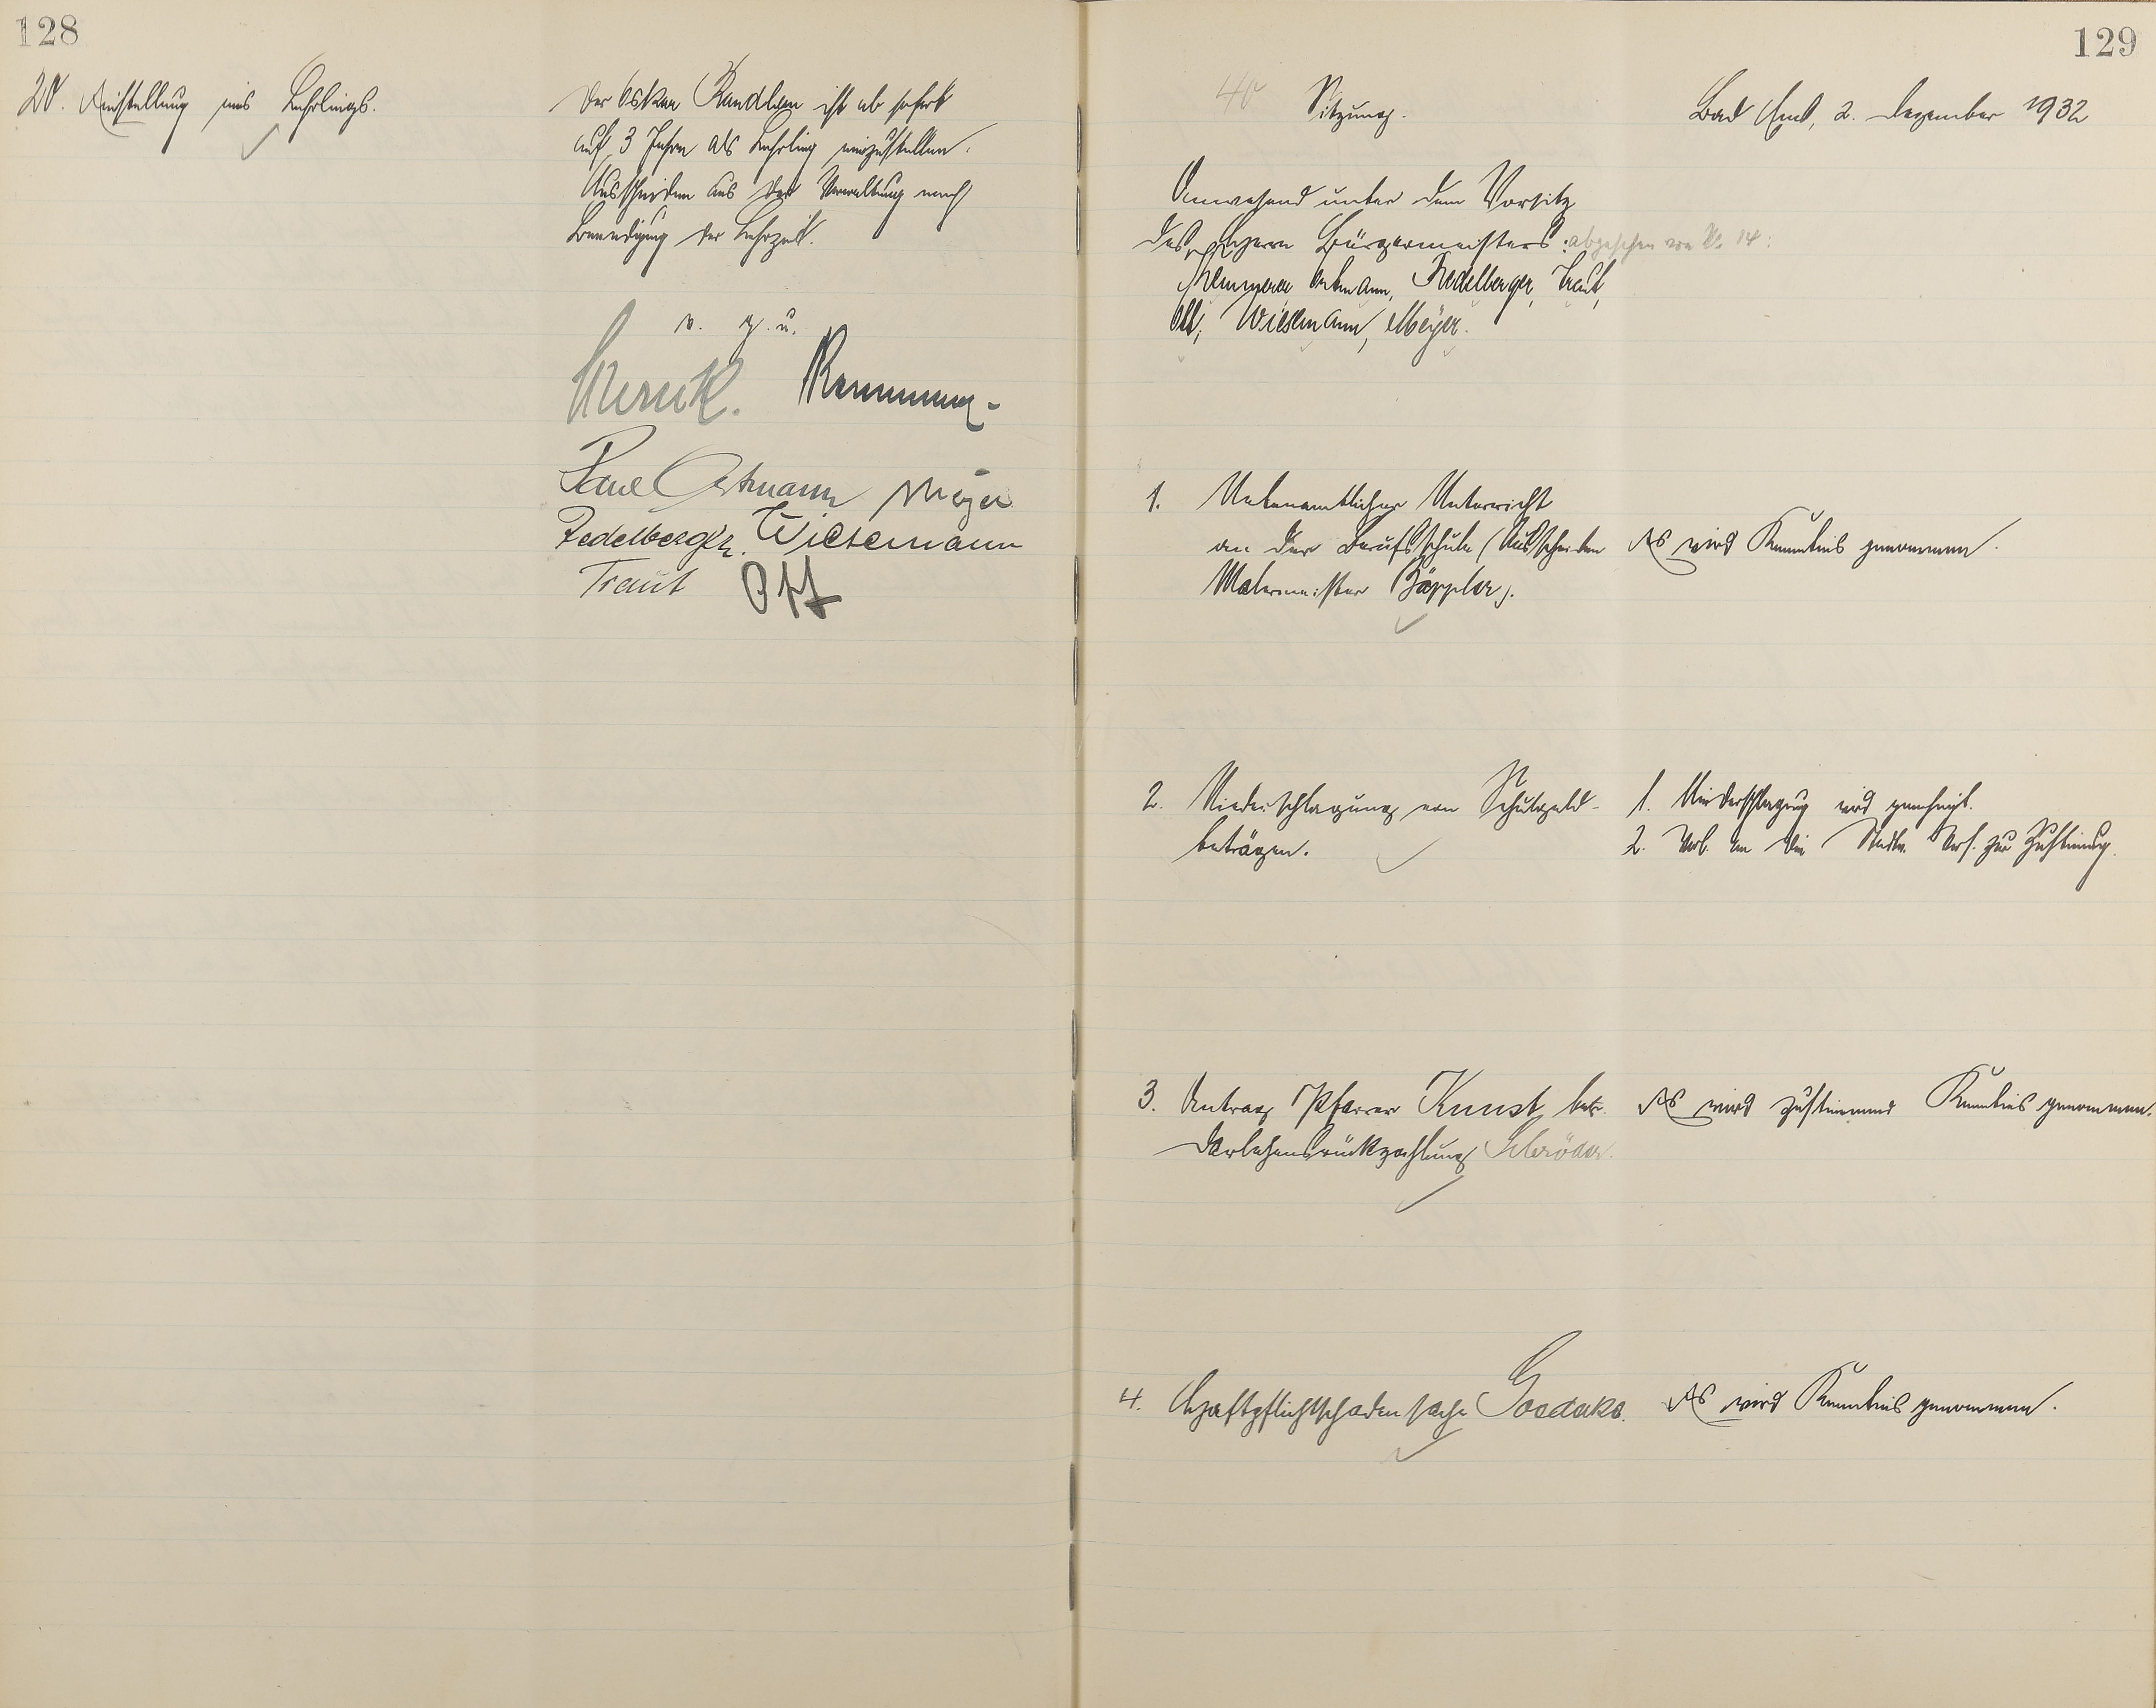 128
20. Einstellung eines Lehrlings.
Der Oskar ist ab sofort
auf 3 Jahre als Lehrling einzustellen.
Ausscheiden aus der Verwaltung nach
Beendigung der Lehrzeit.
v. g. u.
Karl Ortmann Meyer
Fedelberger. Wiesemann
Traut Ott
129
40 Sitzung.
Bad Ems, 2. Dezember 1932
Anwesend unter dem Vorsitz
des Herrn Bürgermeisters: abgesehen von No 14:
Ortmann, Fedelberger, Traut,
Ott, Wiesemann, Meyer.
1. Nebenamtlicher Unterricht
an der Berufsschule (Ausscheiden
Malermeister Göppler).
Es wird Kenntnis genommen.
2. Niederschlagung von Schulgeld-
beträgen.
1. Niederschlagung wird genehmigt.
2. Vorl. an die Stadtv. Vers. zur Zustimmung.
3. Antrag Pfarrer Kunst betr.
Darlehensrückzahlung Schröder.
Es wird zustimmend Kenntnis genommen.
4. Haftpflichtschadensache
Es wird Kenntnis genommen.